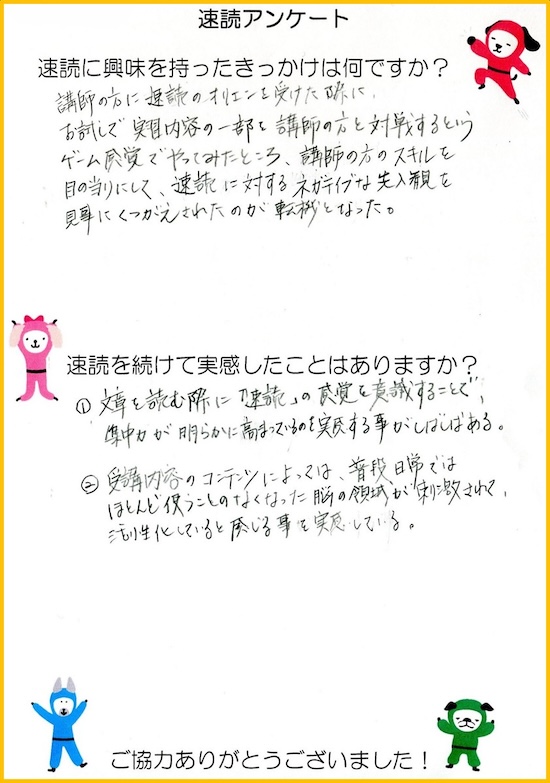 速読アンケート
速読に興味を持ったきっかけは何ですか？
講師の方に速読のオリエンを受けた際に、
お試しで実習内容の一部を講師の方と対戦するという
ゲーム感覚でやってみたところ、講師の方のスキルを
目の当りにして、速読に対するネガティブな先入観を
見事にくつがえされたのが転機となった。
速読を続けて実感したことはありますか？
① 文章を読む際に「速読」の感覚を意識することで、
集中力が明らかに高まっているのを実感する事がしばしばある。
② 受講内容のコンテンツによっては、普段日常では
ほとんど使うことのなくなった脳の領域が刺激されて、
活性化していると感じる事を実感している。
ご協力ありがとうございました！